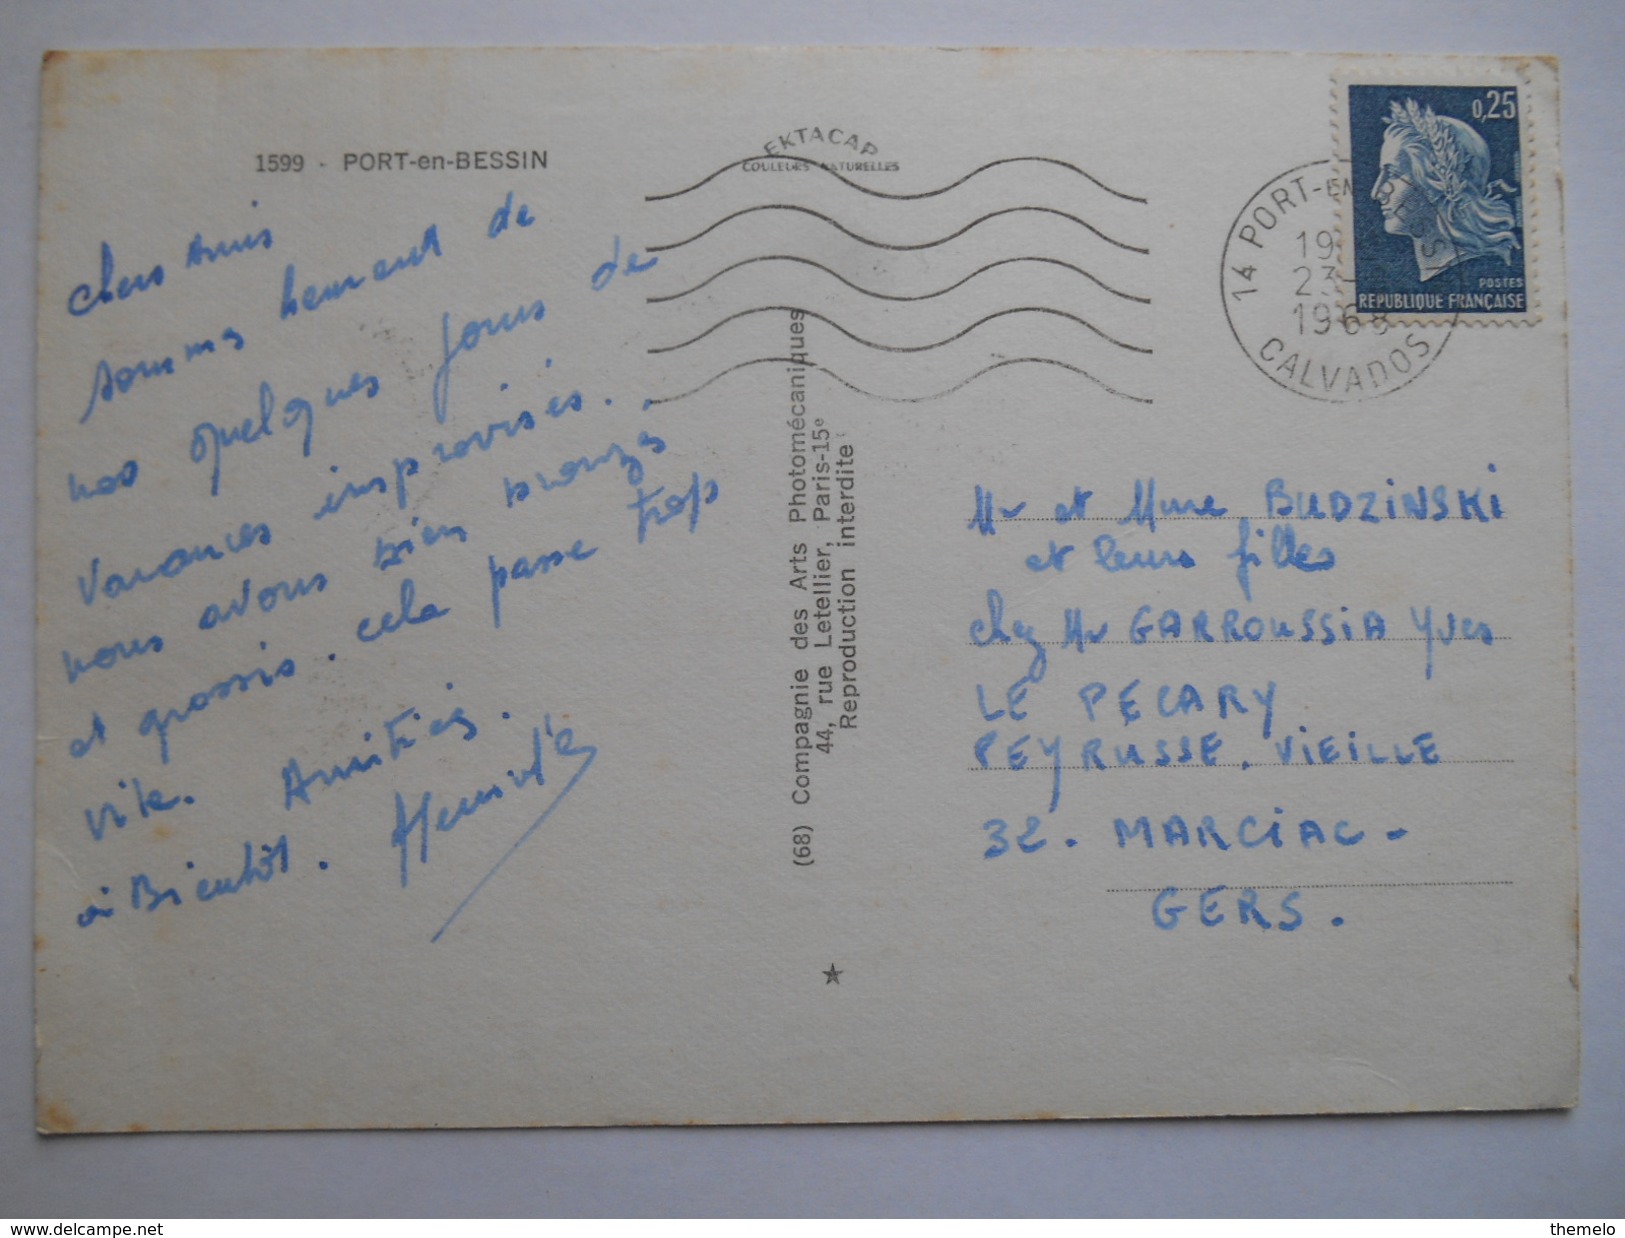 1599 - PORT-en-BESSIN
EKTACAP
COULEURS NATURELLES
chers Amis
sommes heureux de
nos quelques jours de
vacances improvisés.
nous avons bien bronzés.
et grossis. cela passe trop
vite. Amitiés.
à Bientôt.
(68) Compagnie des Arts Photomécaniques
44, rue Letellier, Paris-15e
Reproduction interdite
0,25
POSTES
REPUBLIQUE FRANÇAISE
14 PORT-EN-BESSIN
19
23-
1968
CALVADOS
Mr et Mme BUDZINSKI
et leurs filles
chez Mr GARROUSSIA Yves
LE PECARY
PEYRUSSE. VIEILLE
32. MARCIAC -
GERS.
http://www.delcampe.net
themelo